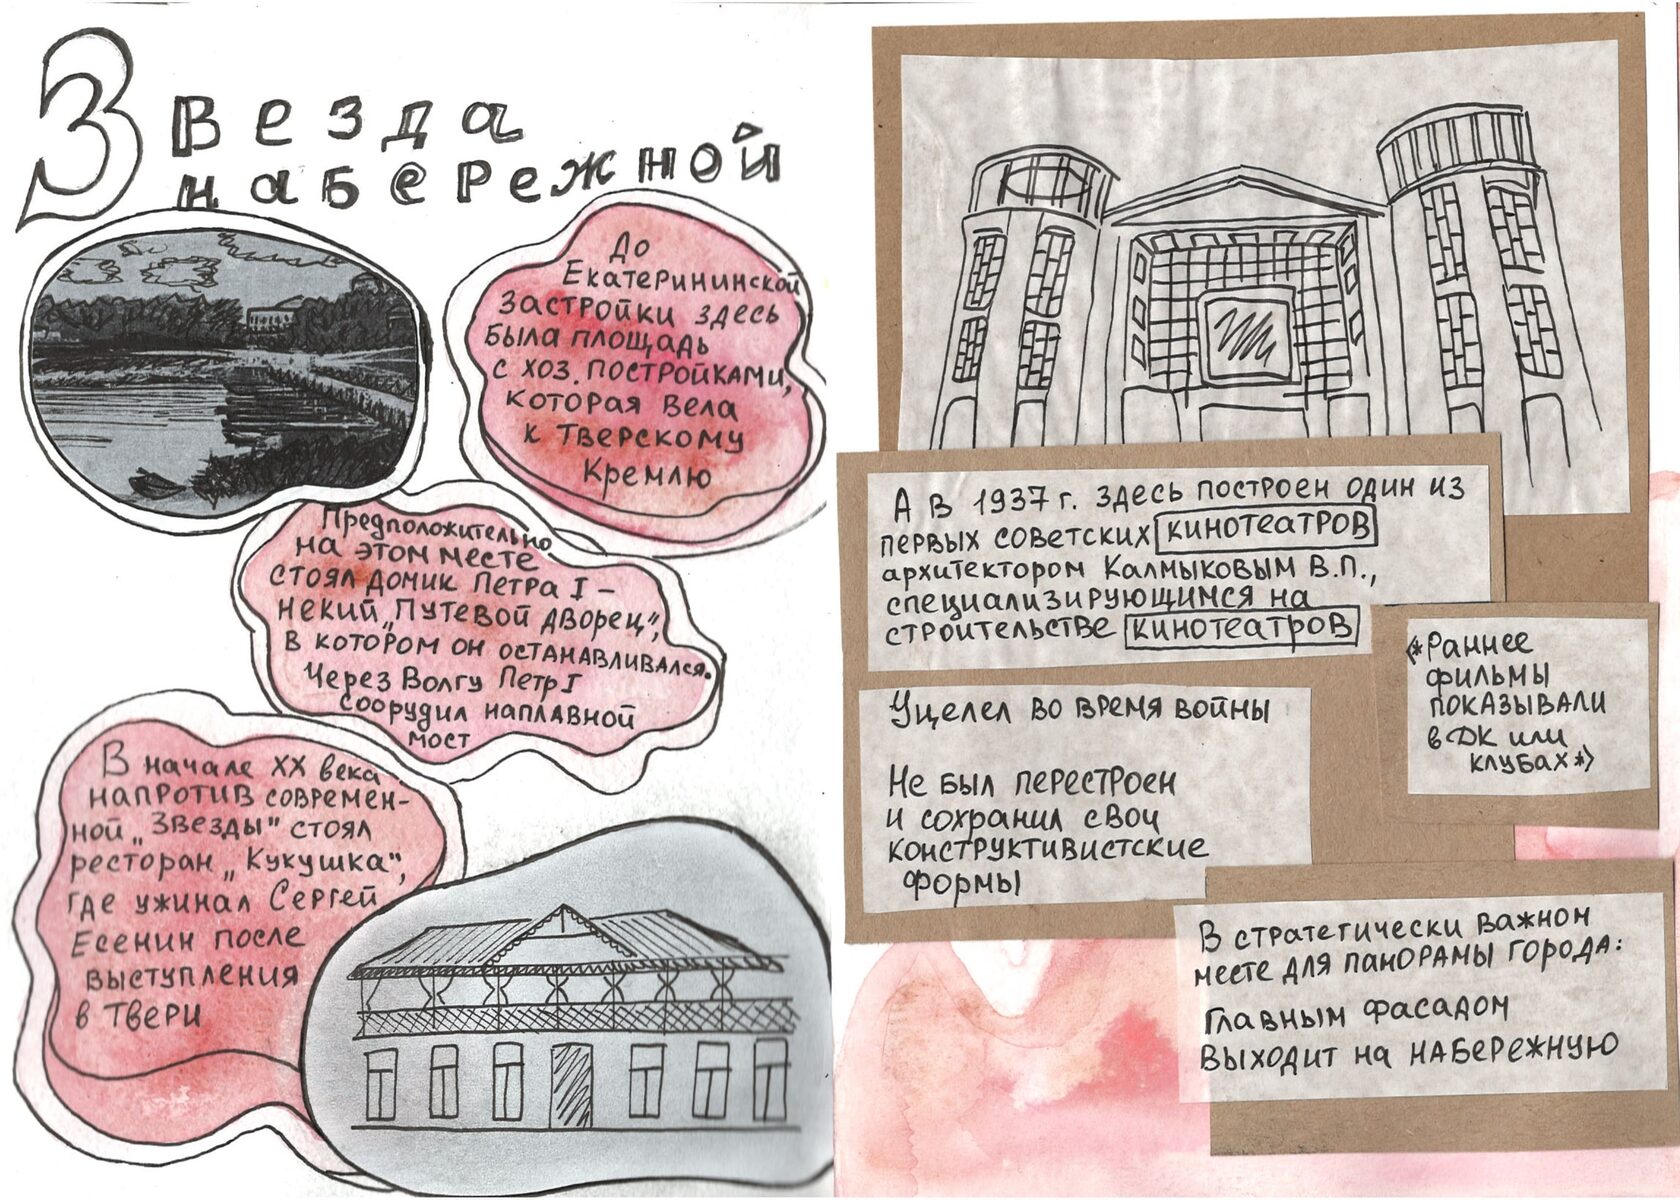 Звезда
набережной
До
Екатерининской
застройки здесь
была площадь
с хоз. постройками,
которая вела
к Тверскому
Кремлю
Предположительно
на этом месте
стоял домик Петра I –
некий „Путевой дворец",
в котором он останавливался.
Через Волгу Петр I
соорудил наплавной
мост
В начале XX века
напротив современ-
ной „Звезды" стоял
ресторан „Кукушка",
где ужинал Сергей
Есенин после
выступления
в Твери
А в 1937 г. здесь построен один из
первых советских кинотеатров
архитектором Калмыковым В.П.,
специализирующимся на
строительстве кинотеатров
(*Раннее
фильмы
показывали
в ДК или
клубах*)
Уцелел во время войны
Не был перестроен
и сохранил свои
конструктивистские
формы
В стратегически важном
месте для панорамы города:
главным фасадом
выходит на набережную